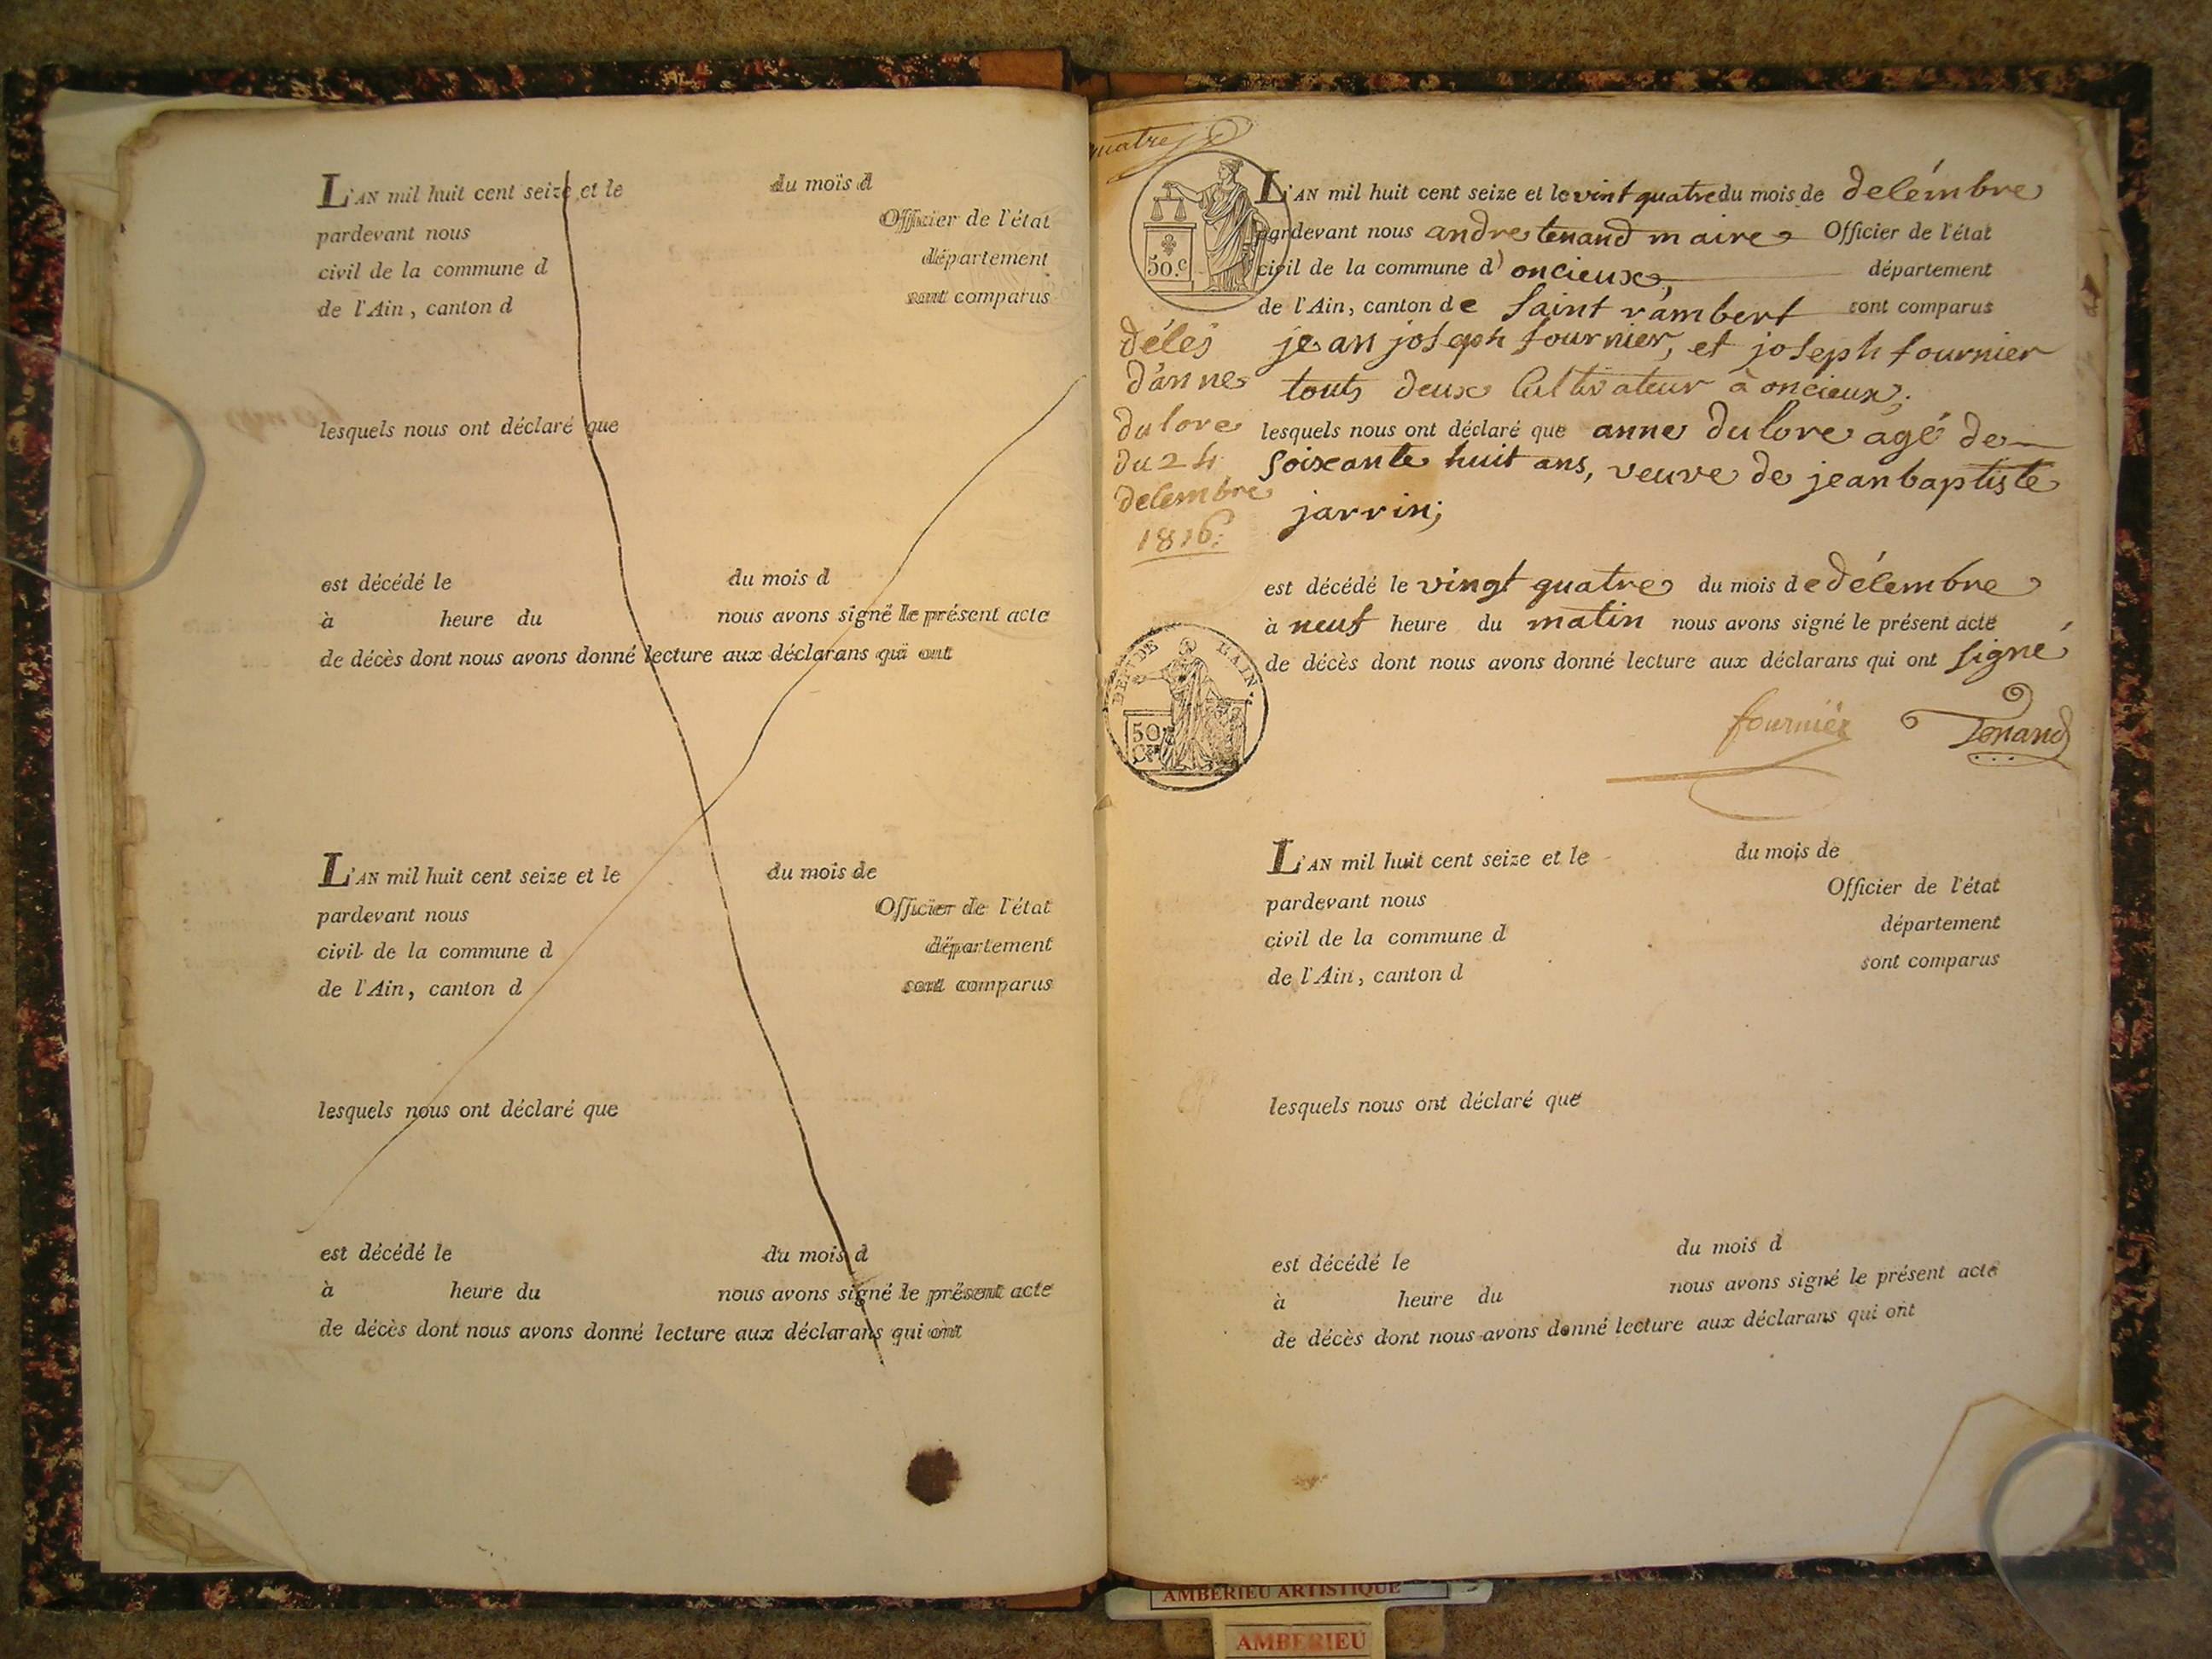 L'AN mil huit cent seize et le du mois d
pardevant nous Officier de l'état
civil de la commune d département
de l'Ain, canton d sont comparus
lesquels nous ont déclaré que
est décédé le du mois d
à heure du nous avons signé le présent acte
de décès dont nous avons donné lecture aux déclarans qui ont
L'AN mil huit cent seize et le du mois de
pardevant nous Officier de l'état
civil de la commune d département
de l'Ain, canton d sont comparus
lesquels nous ont déclaré que
est décédé le du mois d
à heure du nous avons signé le présent acte
de décès dont nous avons donné lecture aux déclarans qui ont
uatre
50.c
L'AN mil huit cent seize et le vint quatre du mois de décémbre
pardevant nous andre tenand maire Officier de l'état
civil de la commune d' oncieux, département
de l'Ain, canton de saint rambert sont comparus
jean joseph fournier, et joseph fournier
touts deux cultivateur à oncieux;
lesquels nous ont déclaré que anne dulore agé de
soixante huit ans, veuve de jean baptiste
jarrin;
est décédé le vingt quatre du mois de décembre
à neuf heure du matin nous avons signé le présent acte
de décès dont nous avons donné lecture aux déclarans qui ont signé
décés
d'anne
dulore
du 24
decembre
1816.
DEPT DE L'AIN
50
fournier Tenand
L'AN mil huit cent seize et le du mois de
pardevant nous Officier de l'état
civil de la commune d département
de l'Ain, canton d sont comparus
lesquels nous ont déclaré que
est décédé le du mois d
à heure du nous avons signé le présent acte
de décès dont nous avons donné lecture aux déclarans qui ont
AMBERIEU ARTISTIQUE
AMBERIEU